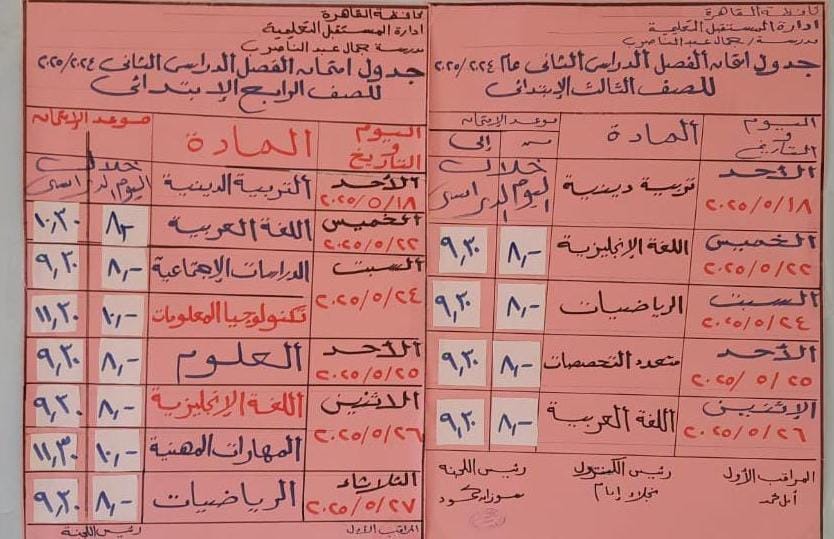 محافظة القاهرة
ادارة المستقبل التعليمية
مدرسة / جمال عبد الناصر ب
جدول امتحان الفصل الدراسى الثانى عام ٢٠٢٥/٢٠٢٤
للصف الثالث الإبتدائى
اليوم و التاريخ المادة موعد الإمتحان
من إلى
الأحد ٢٠٢٥/٥/١٨ تربية دينية خلال اليوم الدراسى
الخميس ٢٠٢٥/٥/٢٢ اللغة الإنجليزية ٨,- ٩,٣٠
السبت ٢٠٢٥/٥/٢٤ الرياضيات ٨,- ٩,٣٠
الأحد ٢٠٢٥/٥/٢٥ متعدد التخصصات ٨,- ٩,٣٠
الإثنين ٢٠٢٥/٥/٢٦ اللغة العربية ٨,- ٩,٣٠
المراقب الأول رئيس الكنترول رئيس اللجنة
أمل محمد نجلاء إمام سوزان محمود
محافظة القاهرة
ادارة المستقبل التعليمية
مدرسة جمال عبد الناصر ب
جدول امتحان الفصل الدراسى الثانى ٢٠٢٥/٢٠٢٤
للصف الرابع الإبتدائى
اليوم و التاريخ المادة موعد الإمتحان
الأحد ٢٠٢٥/٥/١٨ التربية الدينية خلال اليوم الدراسى
الخميس ٢٠٢٥/٥/٢٢ اللغة العربية ٨,- ١٠,٣٠
السبت ٢٠٢٥/٥/٢٤ الدراسات الإجتماعية ٨,- ٩,٣٠
تكنولوجيا المعلومات ١٠,- ١١,٣٠
الأحد ٢٠٢٥/٥/٢٥ العلوم ٨,- ٩,٣٠
الاثنين ٢٠٢٥/٥/٢٦ اللغة الإنجليزية ٨,- ٩,٣٠
المهارات المهنية ١٠,- ١١,٣٠
الثلاثاء ٢٠٢٥/٥/٢٧ الرياضيات ٨,- ٩,٣٠
المراقب الأول رئيس اللجنة